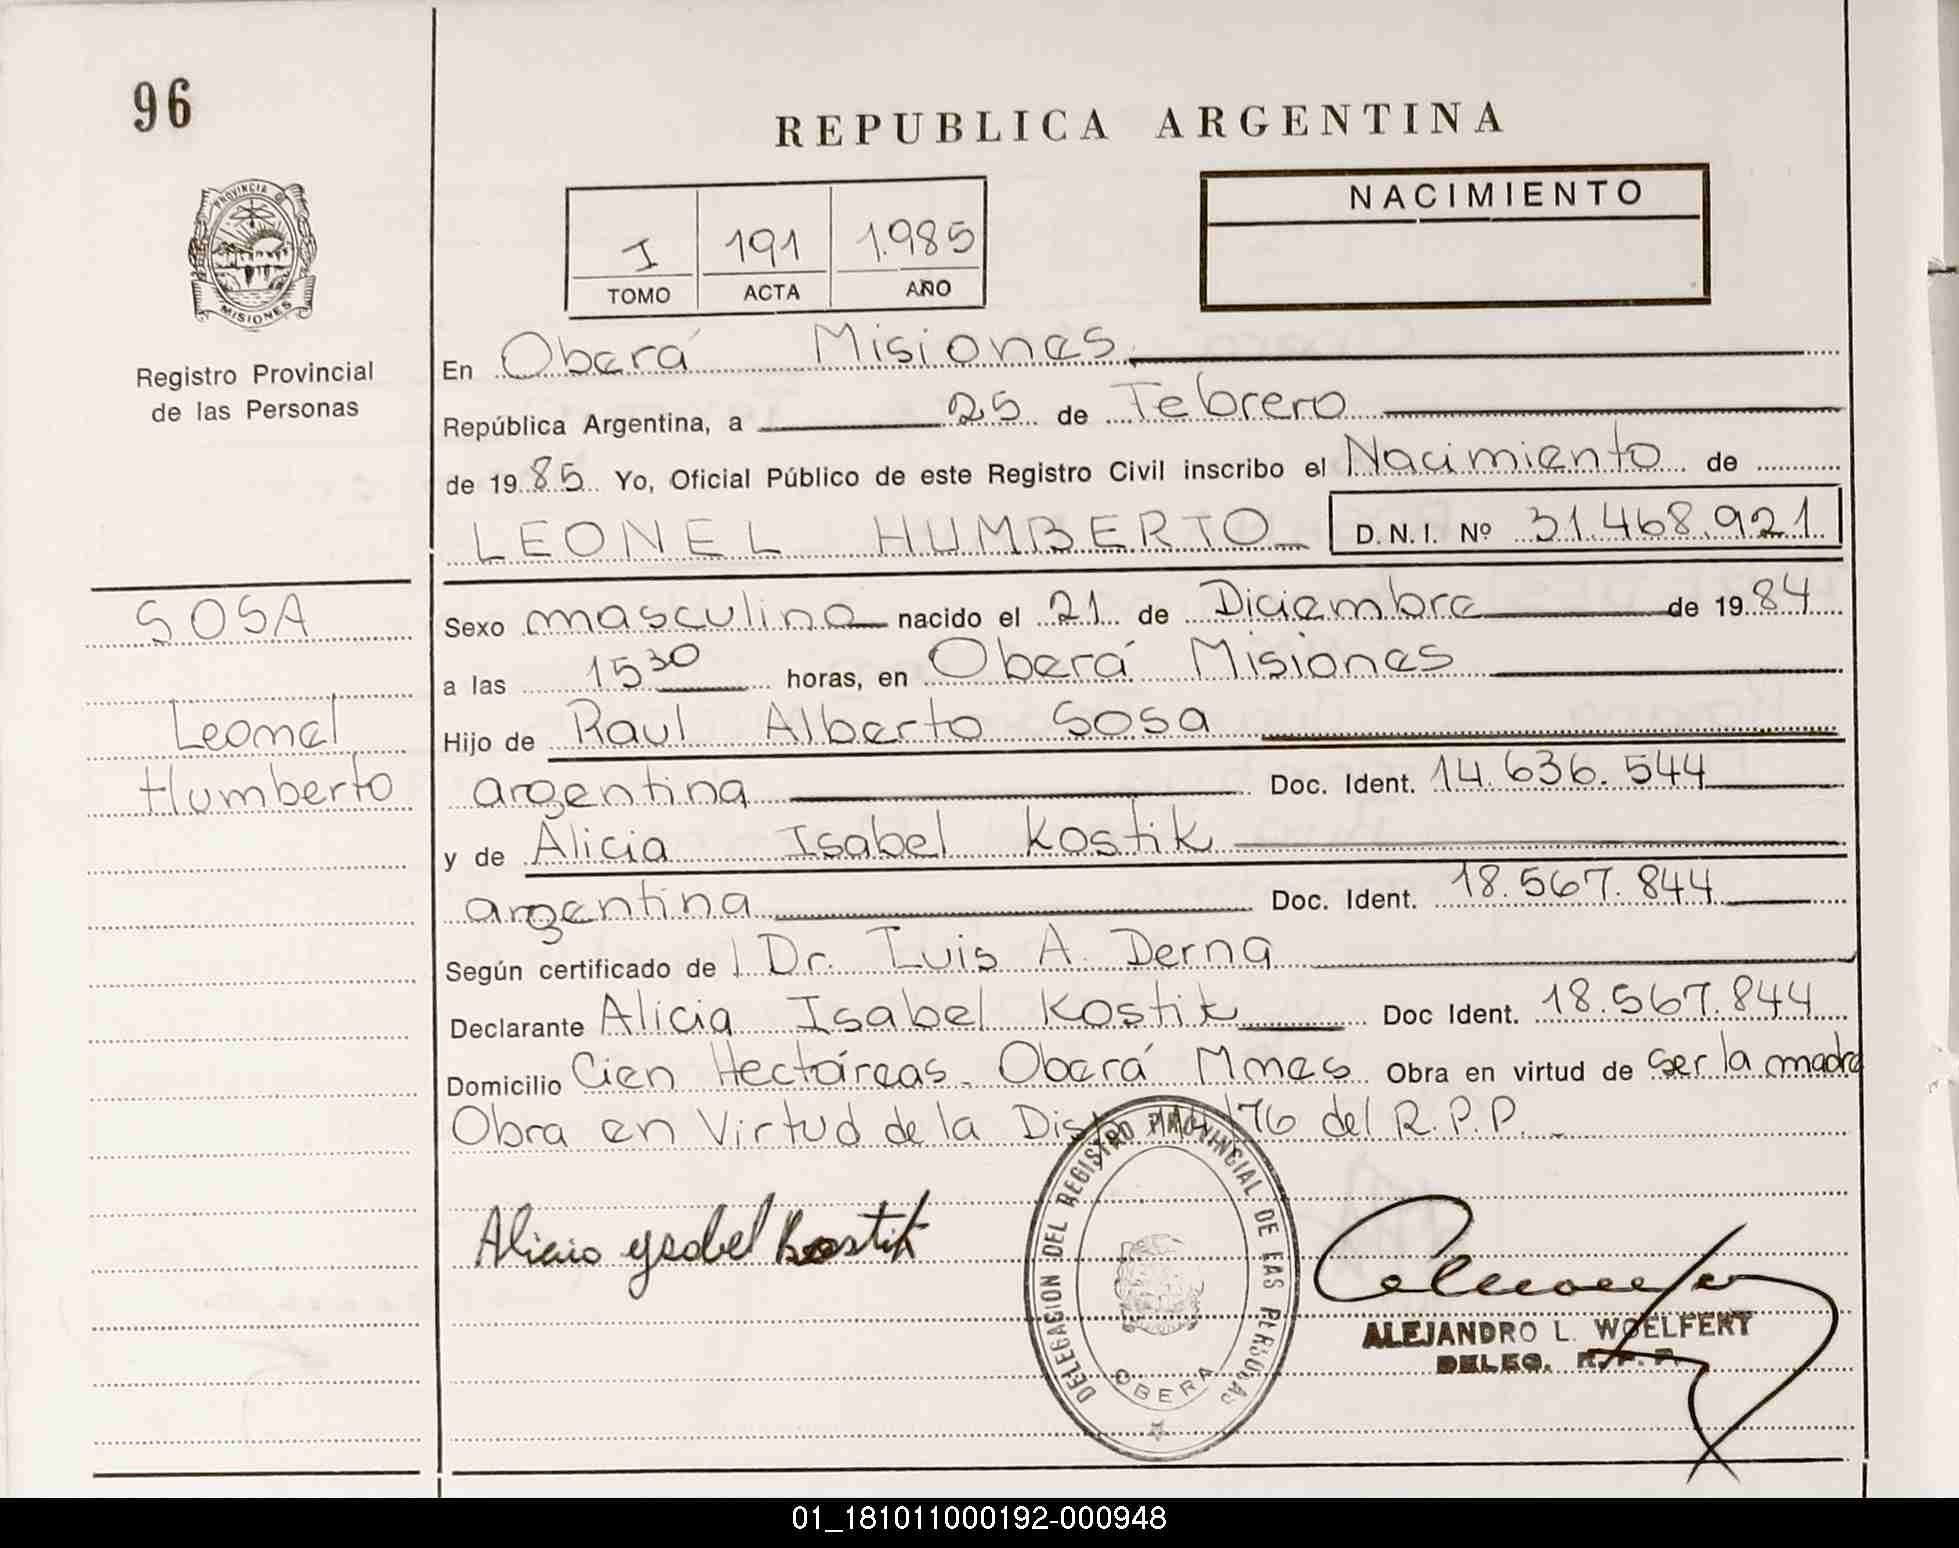 96
REPUBLICA ARGENTINA
PROVINCIA
MISIONES
Registro Provincial
de las Personas
I 191 1.985
TOMO ACTA AÑO
NACIMIENTO
En Oberá Misiones.
República Argentina, a 25 de Febrero
de 1985 Yo, Oficial Público de este Registro Civil inscribo el Nacimiento de
LEONEL HUMBERTO D.N.I. Nº 31.468.921
SOSA
Leonel
Humberto
Sexo masculino nacido el 21 de Diciembre de 1984
a las 15 30 horas, en Oberá Misiones
Hijo de Raul Alberto Sosa
argentina Doc. Ident. 14.636.544
y de Alicia Isabel Kostik
argentina Doc. Ident. 18.567.844
Según certificado de Dr. Luis A. Derna
Declarante Alicia Isabel Kostik Doc Ident. 18.567.844
Domicilio Cien Hectáreas. Oberá Mnes Obra en virtud de ser la madre
Obra en Virtud de la 76 del R.P.P.
Alicia Ysabel Kostik
DELEGACION DEL REGISTRO PROVINCIAL DE LAS PERSONAS
OBERA
ALEJANDRO L. WOELFERT
DELEG. R.P.P.
01_181011000192-000948